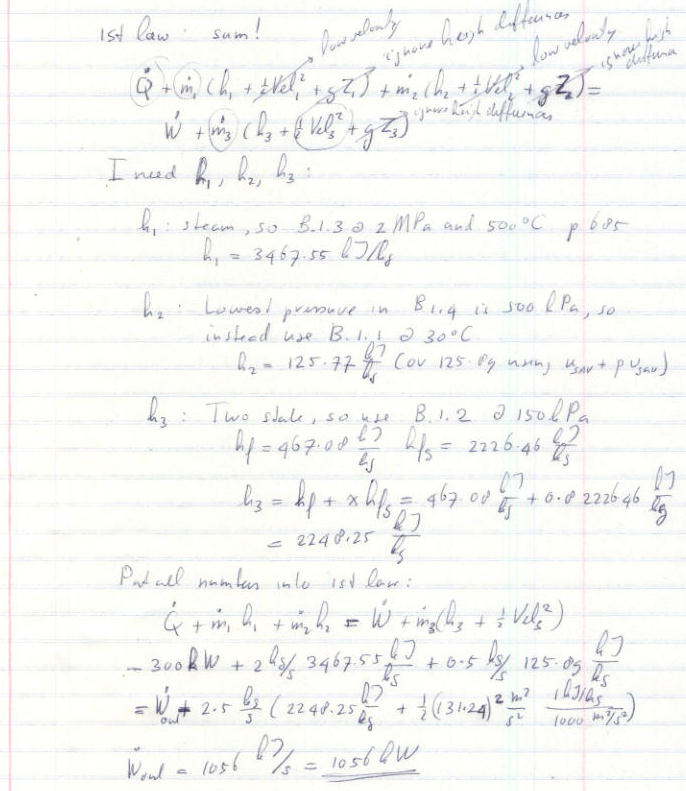 1st law: sum!
low velocity ignore heigh differences low velocity ignore high differenc
Q̇ + ṁ₁ (h₁ + ½Vel₁² + gZ₁) + ṁ₂ (h₂ + ½Vel₂² + gZ₂) =
Ẇ + ṁ₃ (h₃ + ½ Vel₃² + gZ₃) ignore heigh differences
I need h₁, h₂, h₃ :
h₁ : steam, so B.1.3 @ 2 MPa and 500°C p 685
h₁ = 3467.55 kJ/kg
h₂ : Lowest pressure in B.1.4 is 500 kPa, so
instead use B.1.1 @ 30°C
h₂ = 125.77 kJ/kg (or 125.89 using u_sat + p v_sat)
h₃ : Two state, so use B.1.2 @ 150 kPa
hf = 467.08 kJ/kg hfg = 2226.46 kJ/kg
h₃ = hf + x hfg = 467.08 kJ/kg + 0.8 2226.46 kJ/kg
= 2248.25 kJ/kg
Put all numbers into 1st law:
Q̇ + ṁ₁ h₁ + ṁ₂ h₂ = Ẇ + ṁ₃(h₃ + ½ Vel₃²)
- 300 kW + 2 kg/s 3467.55 kJ/kg + 0.5 kg/s 125.89 kJ/kg
= Ẇout + 2.5 kg/s ( 2248.25 kJ/kg + ½ (131.24)² m²/s² 1 kJ/kg / 1000 m²/s² )
Ẇout = 1056 kJ/s = 1056 kW